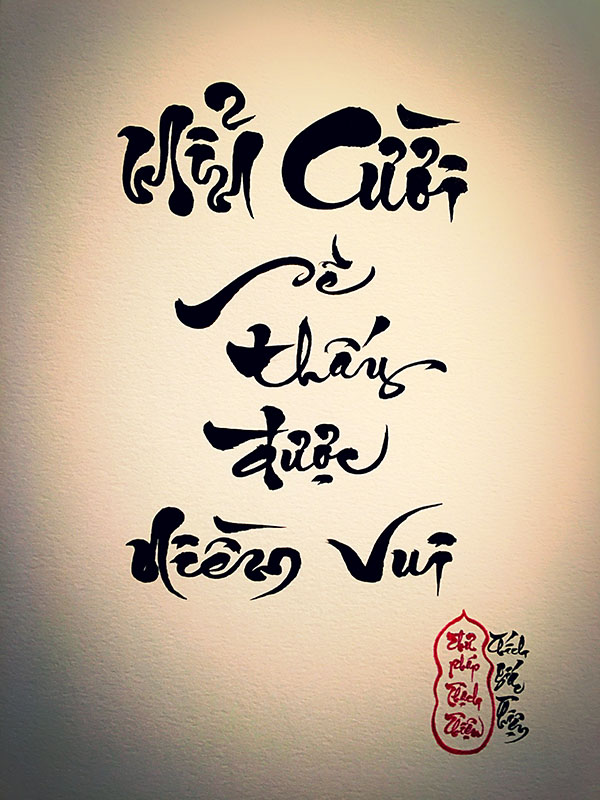 Mỉm Cười
sẽ
thấy
được
Niềm Vui
Thư
pháp
Tịch
Thiện
Thích